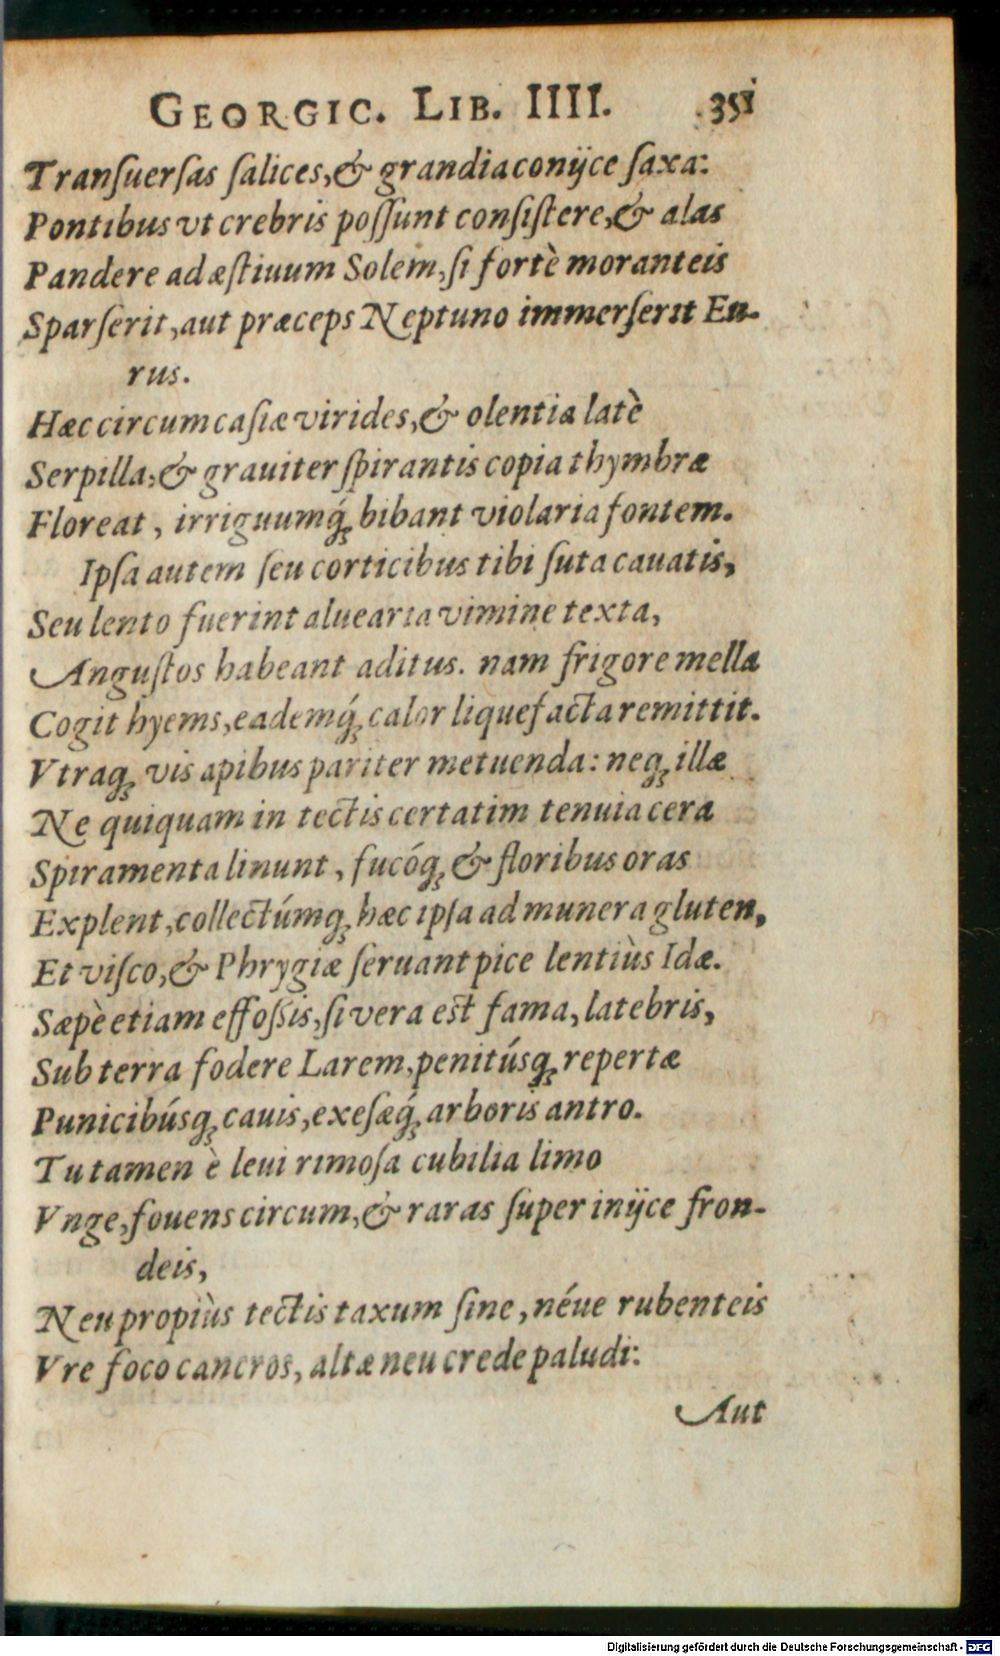 GEORGIC. LIB. IIII. 351
Tranſuerſas ſalices,& grandia conijce ſaxa:
Pontibus vt crebris poſſunt conſiſtere,& alas
Pandere ad æſtiuum Solem,ſi fortè moranteis
Sparſerit,aut præceps Neptuno immerſerit Eu-
rus.
Hæc circum caſiæ virides,& olentia latè
Serpilla,& grauiter ſpirantis copia thymbræ
Floreat, irriguumq́ꝫ bibant violaria fontem.
Ipſa autem ſeu corticibus tibi ſuta cauatis,
Seu lento fuerint aluearia vimine texta,
Anguſtos habeant aditus. nam frigore mella
Cogit hyems,eademq́ꝫ calor liquefacta remittit.
Vtraqꝫ vis apibus pariter metuenda: neqꝫ illæ
Ne quiquam in tectis certatim tenuia cera
Spiramenta linunt, fucóqꝫ & floribus oras
Explent,collectúmqꝫ hæc ipſa ad munera gluten,
Et viſco,& Phrygiæ ſeruant pice lentiùs Idæ.
Sæpè etiam effoſsis,ſi vera est fama,latebris,
Sub terra fodere Larem,penitúsqꝫ repertæ
Punicibúsqꝫ cauis,exeſæq́ꝫ arboris antro.
Tu tamen è leui rimoſa cubilia limo
Vnge,fouens circum,& raras ſuper inijce fron-
deis,
Neu propiùs tectis taxum ſine,néue rubenteis
Vre foco cancros, altæ neu crede paludi:
Aut
Digitalisierung gefördert durch die Deutsche Forschungsgemeinschaft - DFG